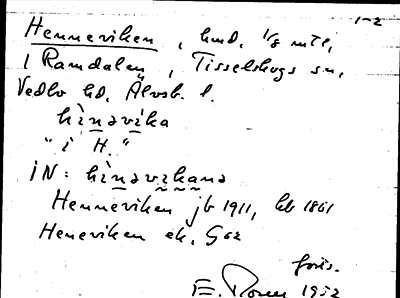 1-2
Henneviken, hmd, 1/8 mtl,
i Ramdalen, Tisselskogs sn,
Vedbo hd, Älvsb. l.
hìnəvika
"i H."
iN: hìnəvikana
Henneviken jb 1911, kb 1861
Heneviken ek. G62
fors.
1952